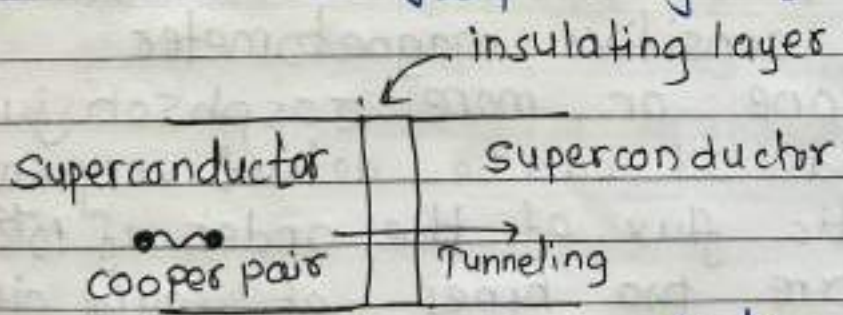 insulating layer
Superconductor Superconductor
cooper pair Tunneling